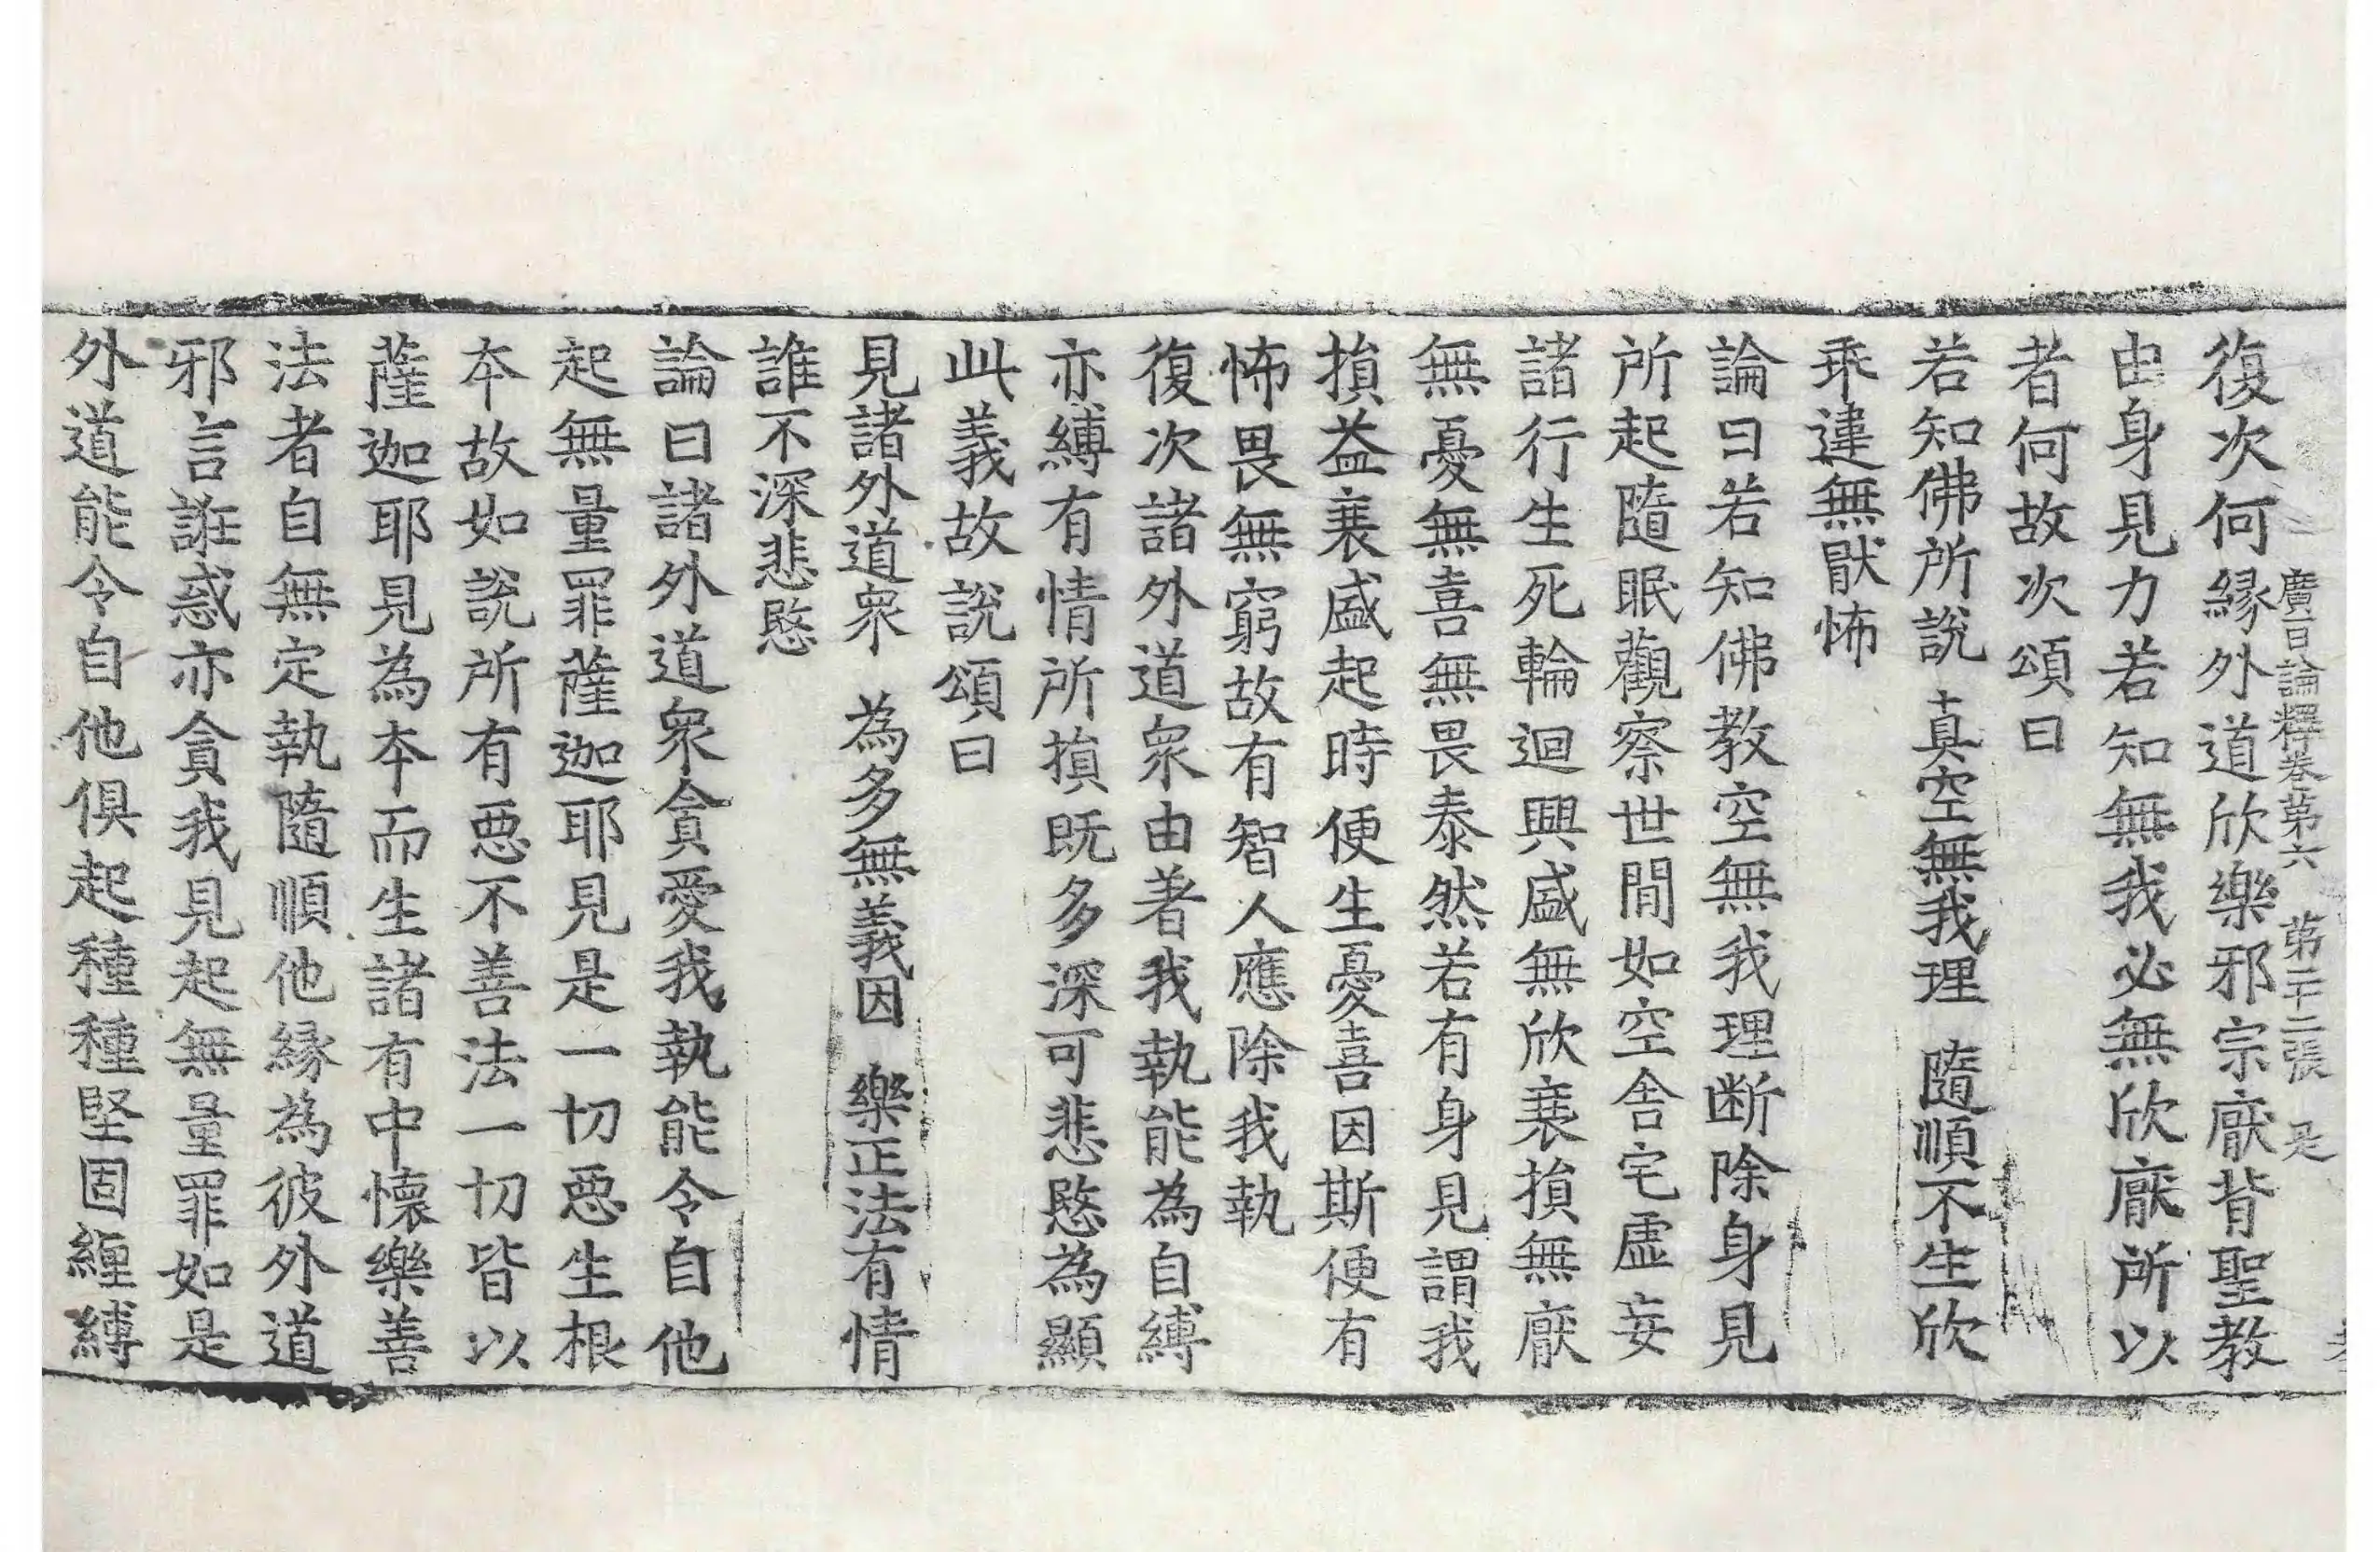 廣百論釋卷第六　第二十二張　是
復次何緣外道欣樂邪宗猒背聖教
由身見力若知無我必無欣猒所以
者何故次頌曰
若知佛所說　真空無我理　隨順不生欣
乖違無猒怖
論曰若知佛教空無我理断除身見
所起隨眠觀察世間如空舍宅虛妄
諸行生死輪迴興盛無欣衰損無猒
無憂無喜無畏泰然若有身見謂我
損益衰盛起時便生憂喜因斯便有
怖畏無窮故有智人應除我執
復次諸外道衆由著我執能為自縛
亦縛有情所損既多深可悲愍為顯
此義故說頌曰
見諸外道衆　為多無義因　樂正法有情
誰不深悲愍
論曰諸外道衆貪愛我執能令自他
起無量罪薩迦耶見是一切惡生根
本故如說所有惡不善法一切皆以
薩迦耶見為本而生諸有中懷樂善
法者自無定執隨順他緣為彼外道
邪言誑惑亦貪我見起無量罪如是
外道能令自他俱起種種堅固纏縛